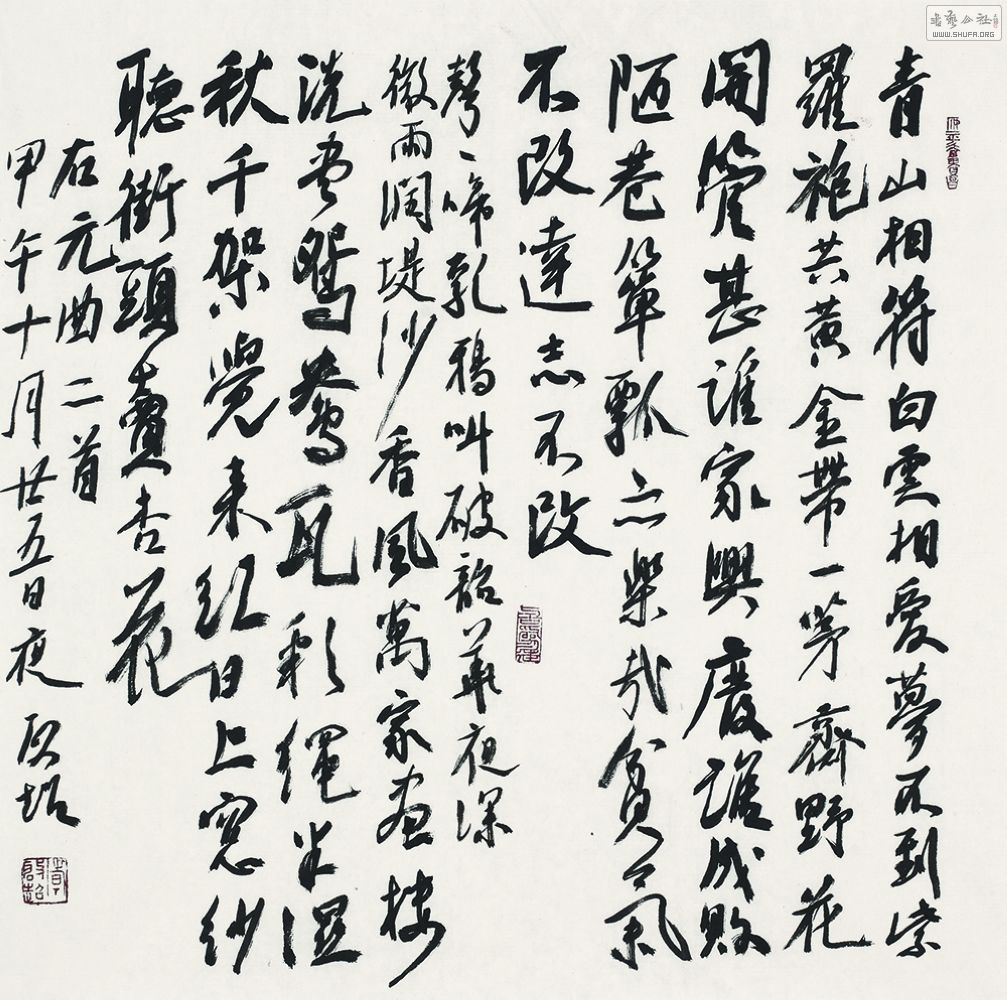 青山相符白雲相愛夢不到紫
羅袍共黃金帶一茅齋野花
開管甚誰家興廢誰成敗
陋巷簞瓢亦樂哉貧氣
不改達志不改
聲聲啼乳鴉叫破韶華夜深
微雨潤堤沙香風萬家畫樓
洗盡鴛鴦瓦彩繩半濕
秋千架覺來紅日上窓紗
聽街頭賣杏花
右元曲二首
甲午十月廿五日夜
书艺公社
WWW.SHUFA.ORG